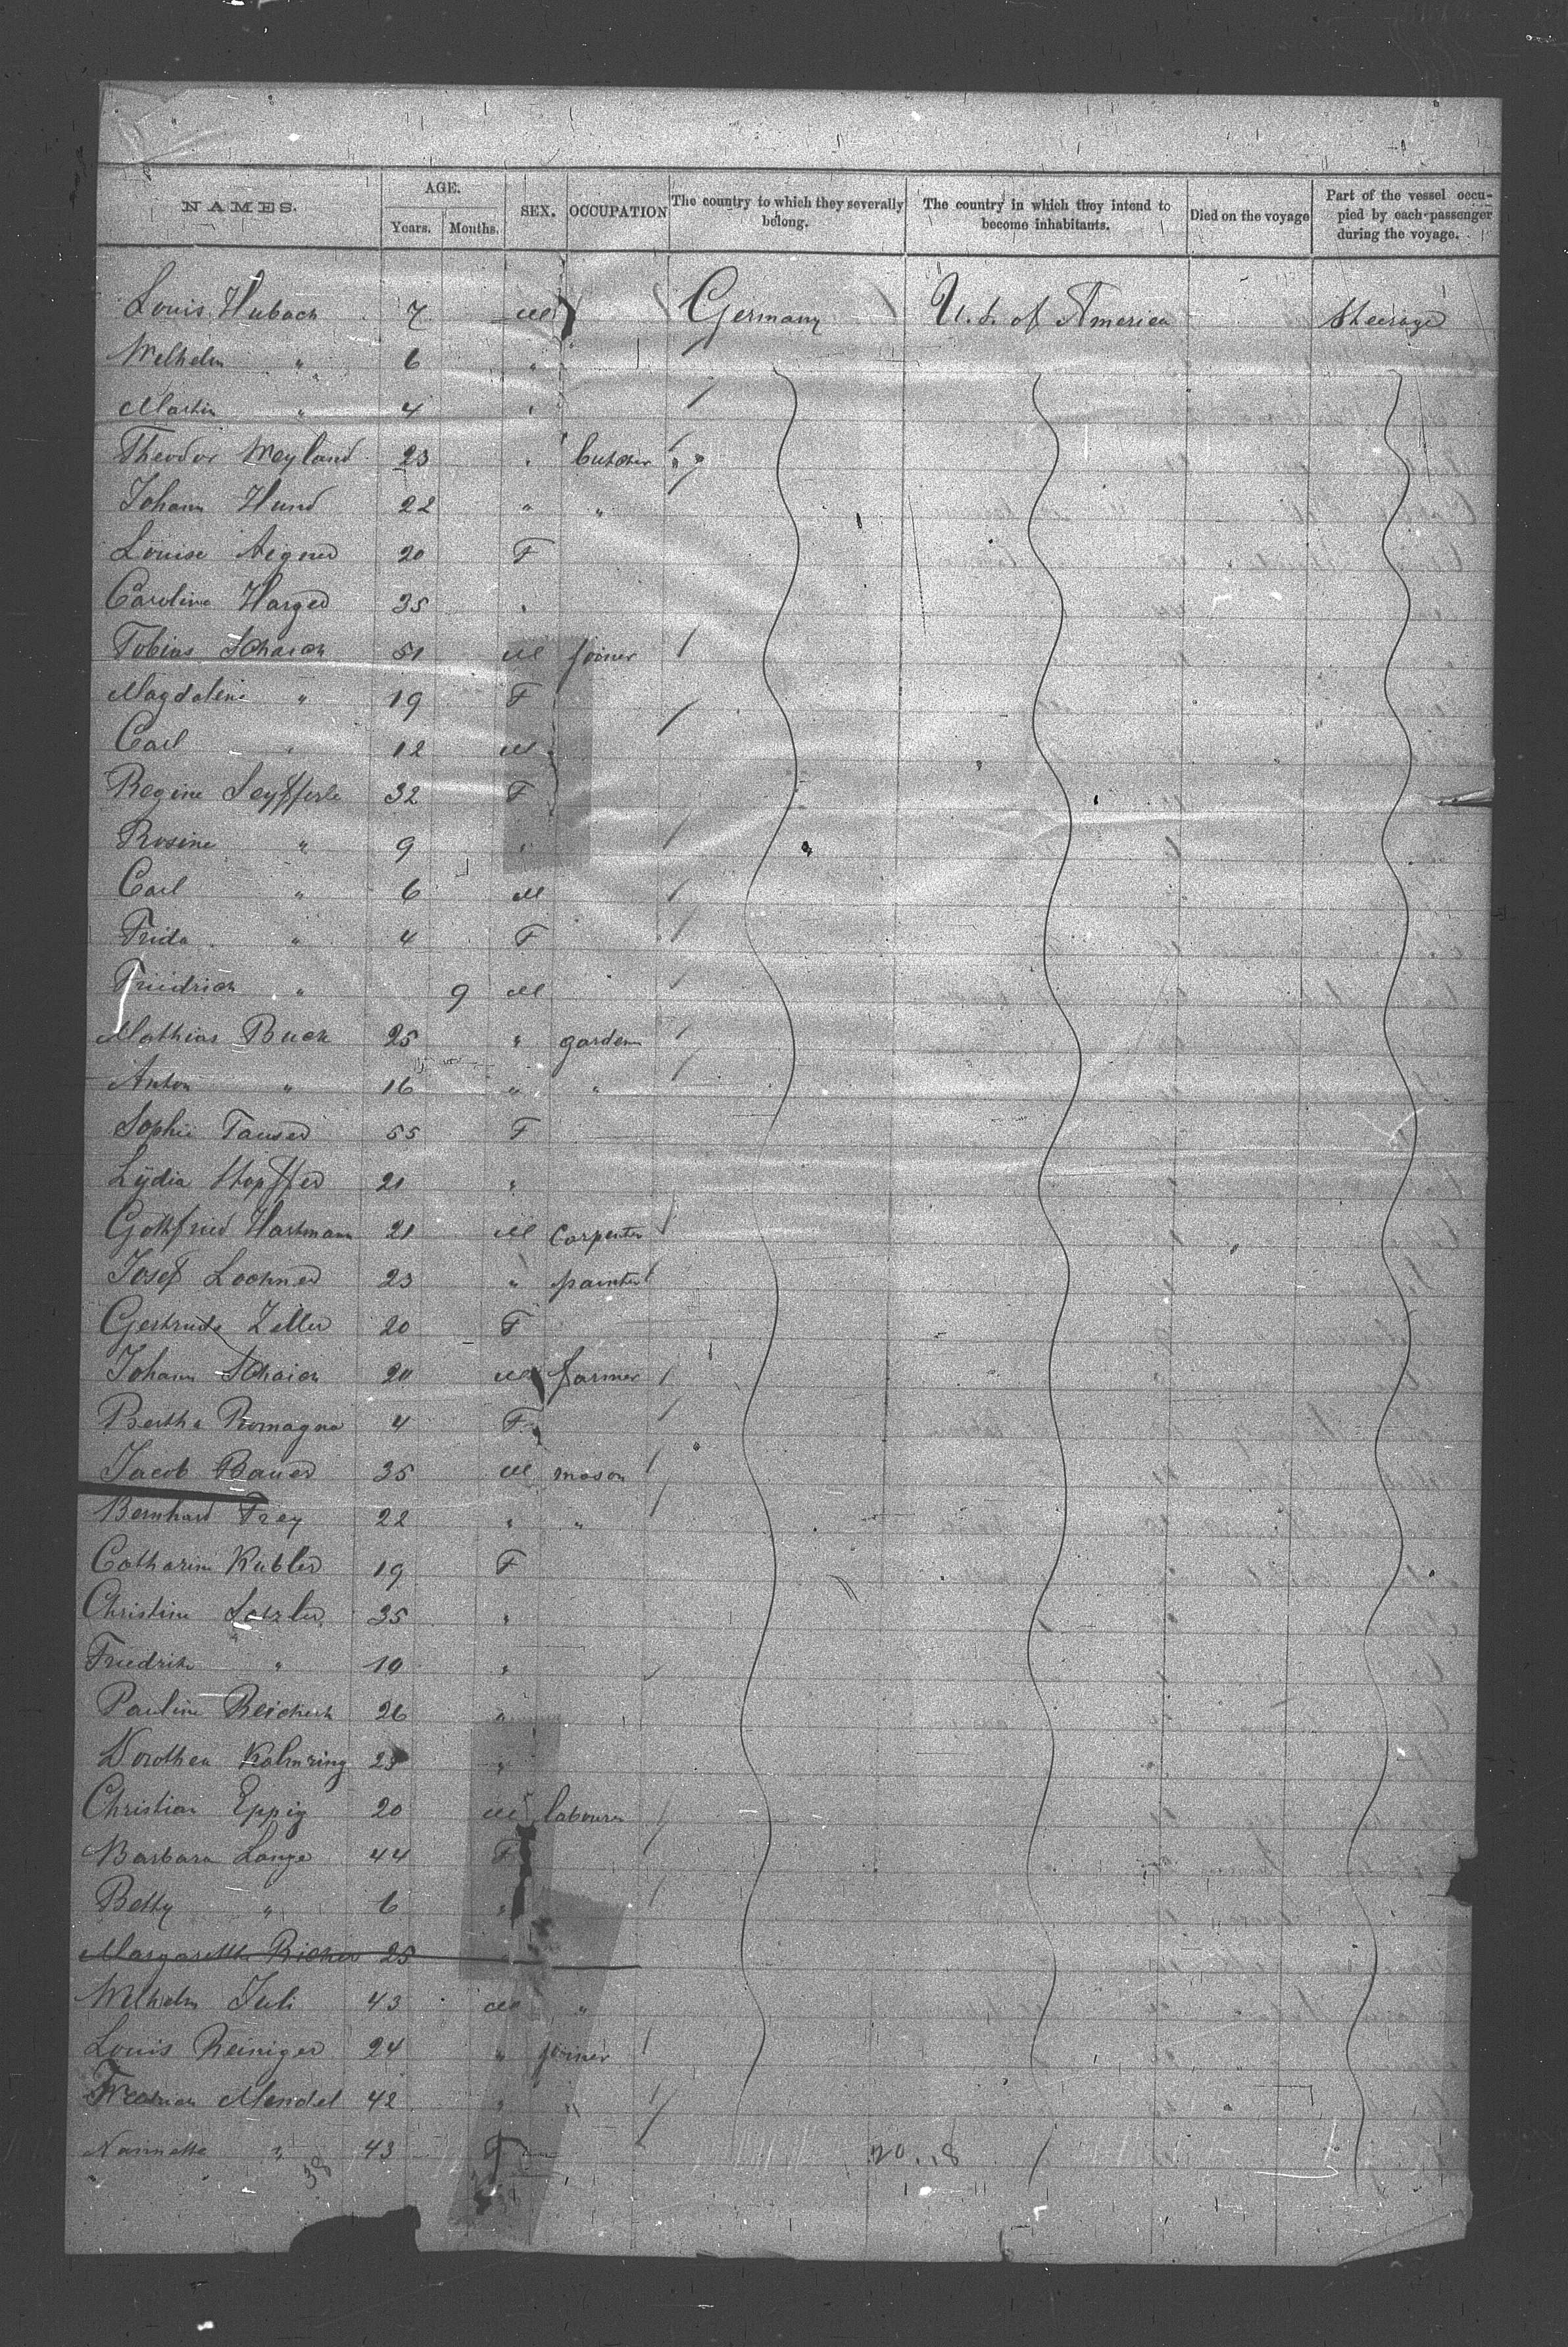 NAMES. AGE. Years. Months. SEX. OCCUPATION The country to which they severally belong. The country in which they intend to become inhabitants. Died on the voyage Part of the vessel occupied by each passenger during the voyage.
Louis Hubach 7 M Germany U. S. of America Steerage
Wilhelm " 6 "
Martin " 4 "
Theodor Weyland 23 " butcher "
Johann Hund 22 " "
Louise Aigner 20 F
Caroline Harger 35 "
Tobias Schaich 51 M joiner
Magdalene " 19 F
Carl " 12 M
Regine Seyfferle 32 F
Rosine " 9 "
Carl " 6 M
Frida " 4 F
Friedrich " 9 M
Mathias Buck 25 " garden
Anton " 16 " "
Sophie Tauser 55 F
Lydia Stopffer 21 "
Gottfried Hartmann 21 M carpenter
Josef Lochner 23 " painter
Gertrude Zeller 20 F
Johann Schaich 20 M farmer
Bertha Romagna 4 F
Jacob Bauer 35 M mason
Bernhard Frey 22 " "
Catharine Kubler 19 F
Christine 35 "
Friedrike " 10 "
Pauline Reichert 26 "
Dorothea Kalmring 23 "
Christian Eppig 20 M labourer
Barbara Lange 44 F
Betty " 6 "
Margarethe Richer 25 "
Wilhelm Juli 43 M "
Louis Reiniger 24 " joiner
Mendel 42 " "
Nannette " 43 F
38
20 . 18